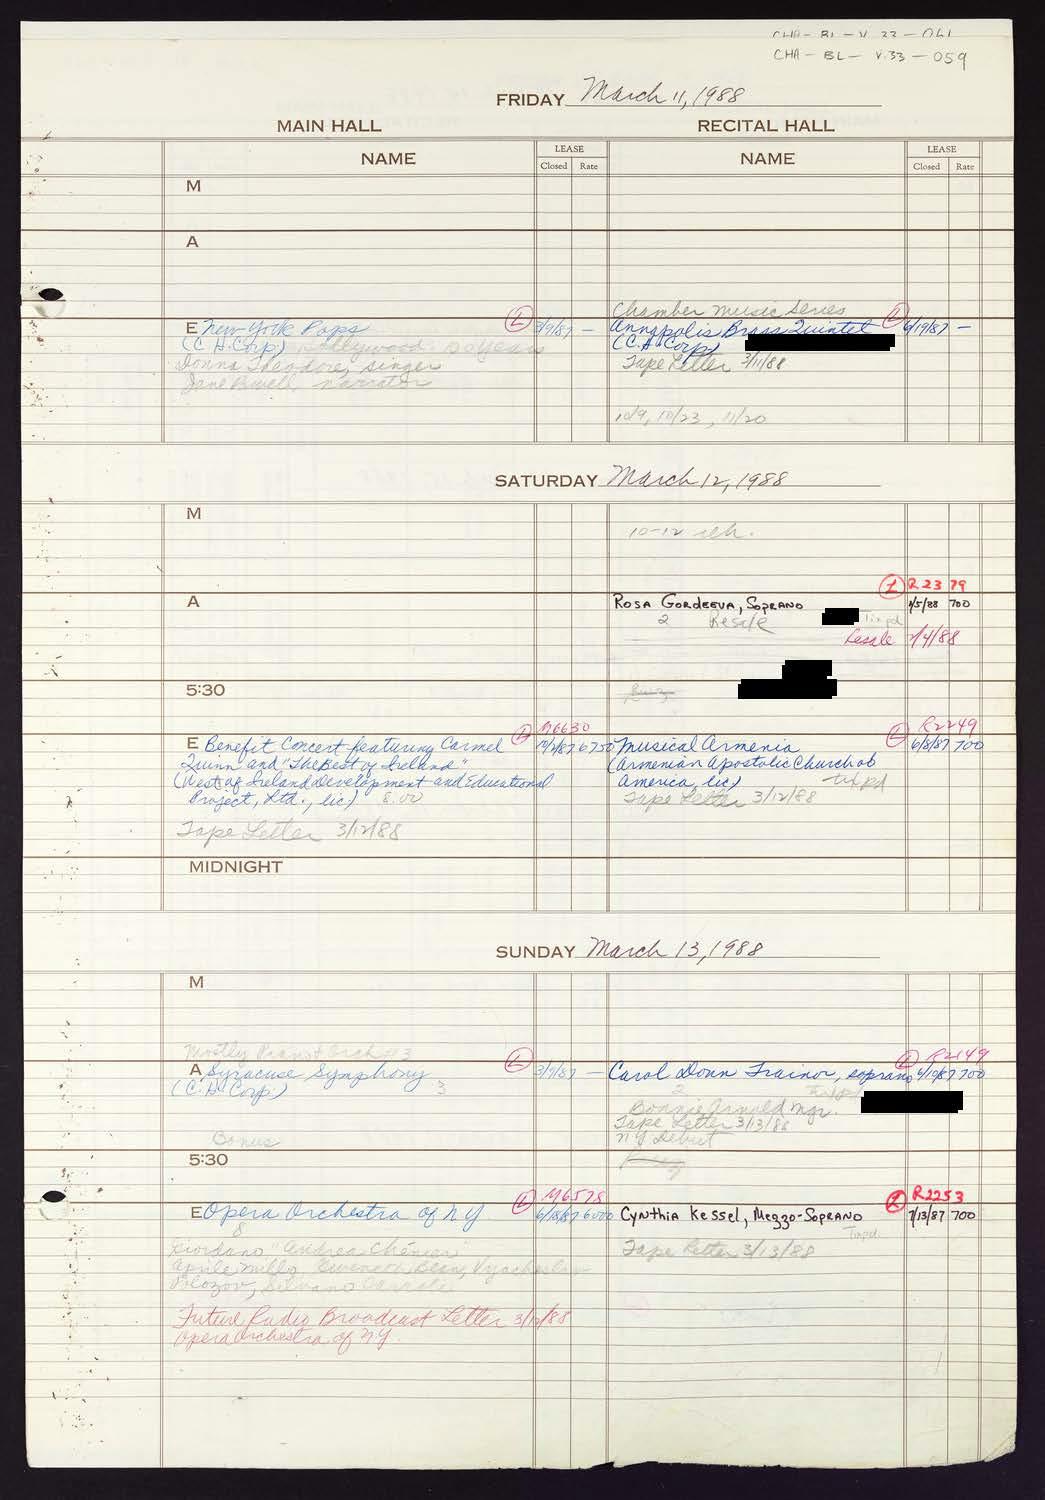 CHA - BL - V. 33 - 061
CHA - BL - V.33 - 059
FRIDAY March 11, 1988
MAIN HALL RECITAL HALL
NAME LEASE Closed Rate NAME LEASE Closed Rate
M
A
Chamber Music Series
E New York Pops L 3/9/87 — Annapolis Brass Quintet L 6/19/87 —
(C.H. Corp) Hollywood: 50 Years (C.H. Corp)
Donna Theodore, singer Tape Letter 3/11/88
Jane Powell, narrator
10/9, 10/23, 11/20
SATURDAY March 12, 1988
M
10-12 reh.
L R2379
A Rosa Gordeeva, Soprano 1/5/88 700
2 Resale Tixpd
Resale 1/4/88
5:30
L M6630 L R2249
E Benefit Concert featuring Carmel 6750 Musical Armenia 6/8/87 700
Quinn and "The Best of Ireland" (Armenian Apostolic Church of
(West of Ireland Development and Educational America, lic) tix pd
Project, Ltd., lic) 8:00 Tape Letter 3/12/88
Tape Letter 3/12/88
MIDNIGHT
SUNDAY March 13, 1988
M
Mostly Piano & Orch #3 L R2149
A Syracuse Symphony L 3/9/87 — Carol Donn Trainor, soprano 6/10/87 700
(C.H. Corp) 3 2 tix pd
Bonnie Arnold mgr.
Tape Letter 3/13/88
Bonus NY Debut
5:30
L M6578 L R2253
E Opera Orchestra of NY 6/18/87 6000 Cynthia Kessel, Mezzo-Soprano 7/13/87 700
8 Tixpd.
Giordano "Andrea Chénier" Tape Letter 3/13/88
Aprile Millo, Gwyneth Bean, Vyacheslav
Polozov, Silvano Carroli
Future Radio Broadcast Letter 3/12/88
Opera Orchestra of NY.